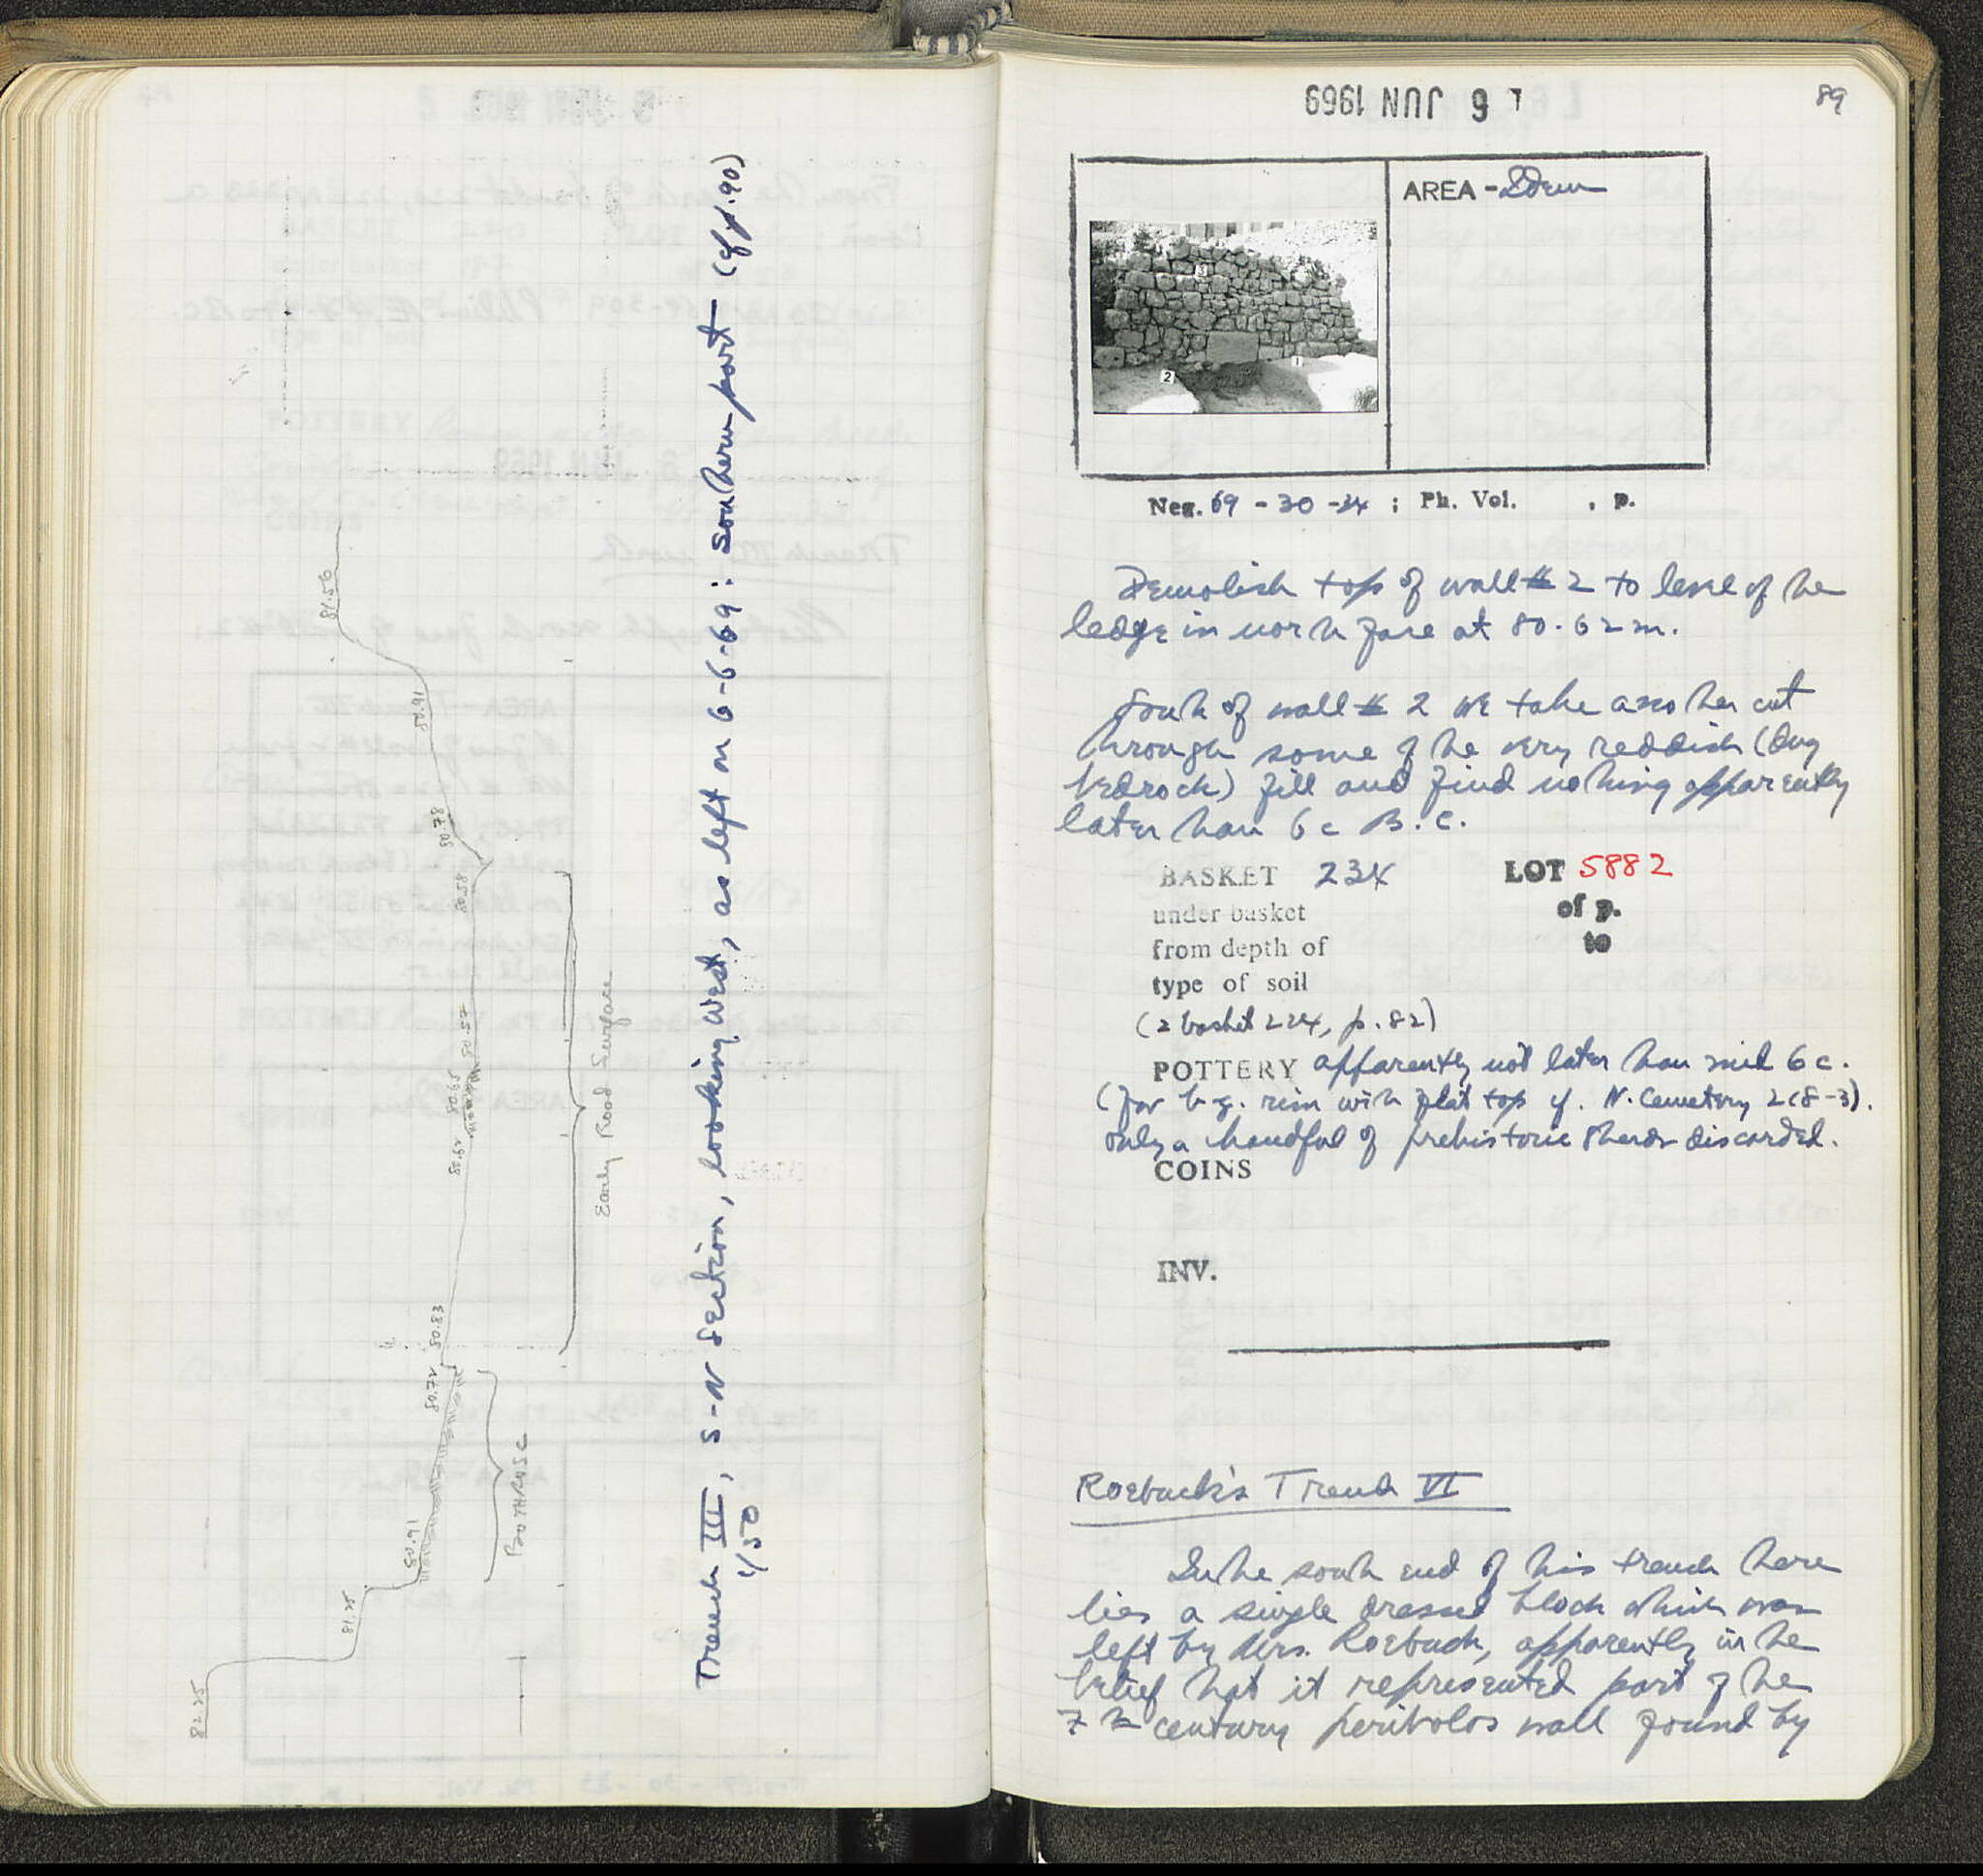 Trench III, S-N Section, looking West, as left on 6-6-69: southern part - (cf p. 90)
1/50
81.56
80.91
80.78
80.58
80.57
80.65
80.62
80.83
80.72
80.91
81.25
82.25
Early Road Surface
BOTHROS C
6 JUN 1969
89
AREA - Idem
3
2
1
Neg. 69 - 30 - 24 ; Ph. Vol. , p.
Demolish top of wall # 2 to level of the
ledge in north face at 80.62 m.
South of wall # 2 we take another cut
through some of the very reddish (dug
bedrock) fill and find nothing apparently
later than 6c B.C.
BASKET 234 LOT 5882
under basket of p.
from depth of to
type of soil
(= basket 224, p. 82)
POTTERY apparently not later than mid 6c.
(for b.g. rim with flat top cf. N. Cemetery 2(8-3).
Only a handful of prehistoric sherds discarded.
COINS
INV.
Roebuck's Trench VI
In the south end of this trench there
lies a single dressed block which was
left by Mrs. Roebuck, apparently in the
belief that it represented part of the
7th century peribolos wall found by